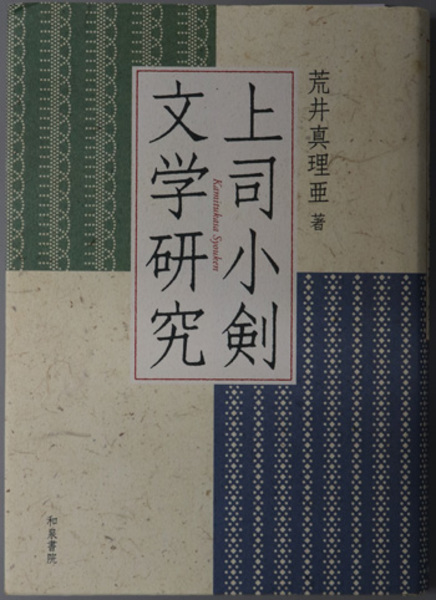 荒井真理亜 著
上司小剣
Kamitukasa Syouken
文学研究
和泉書院